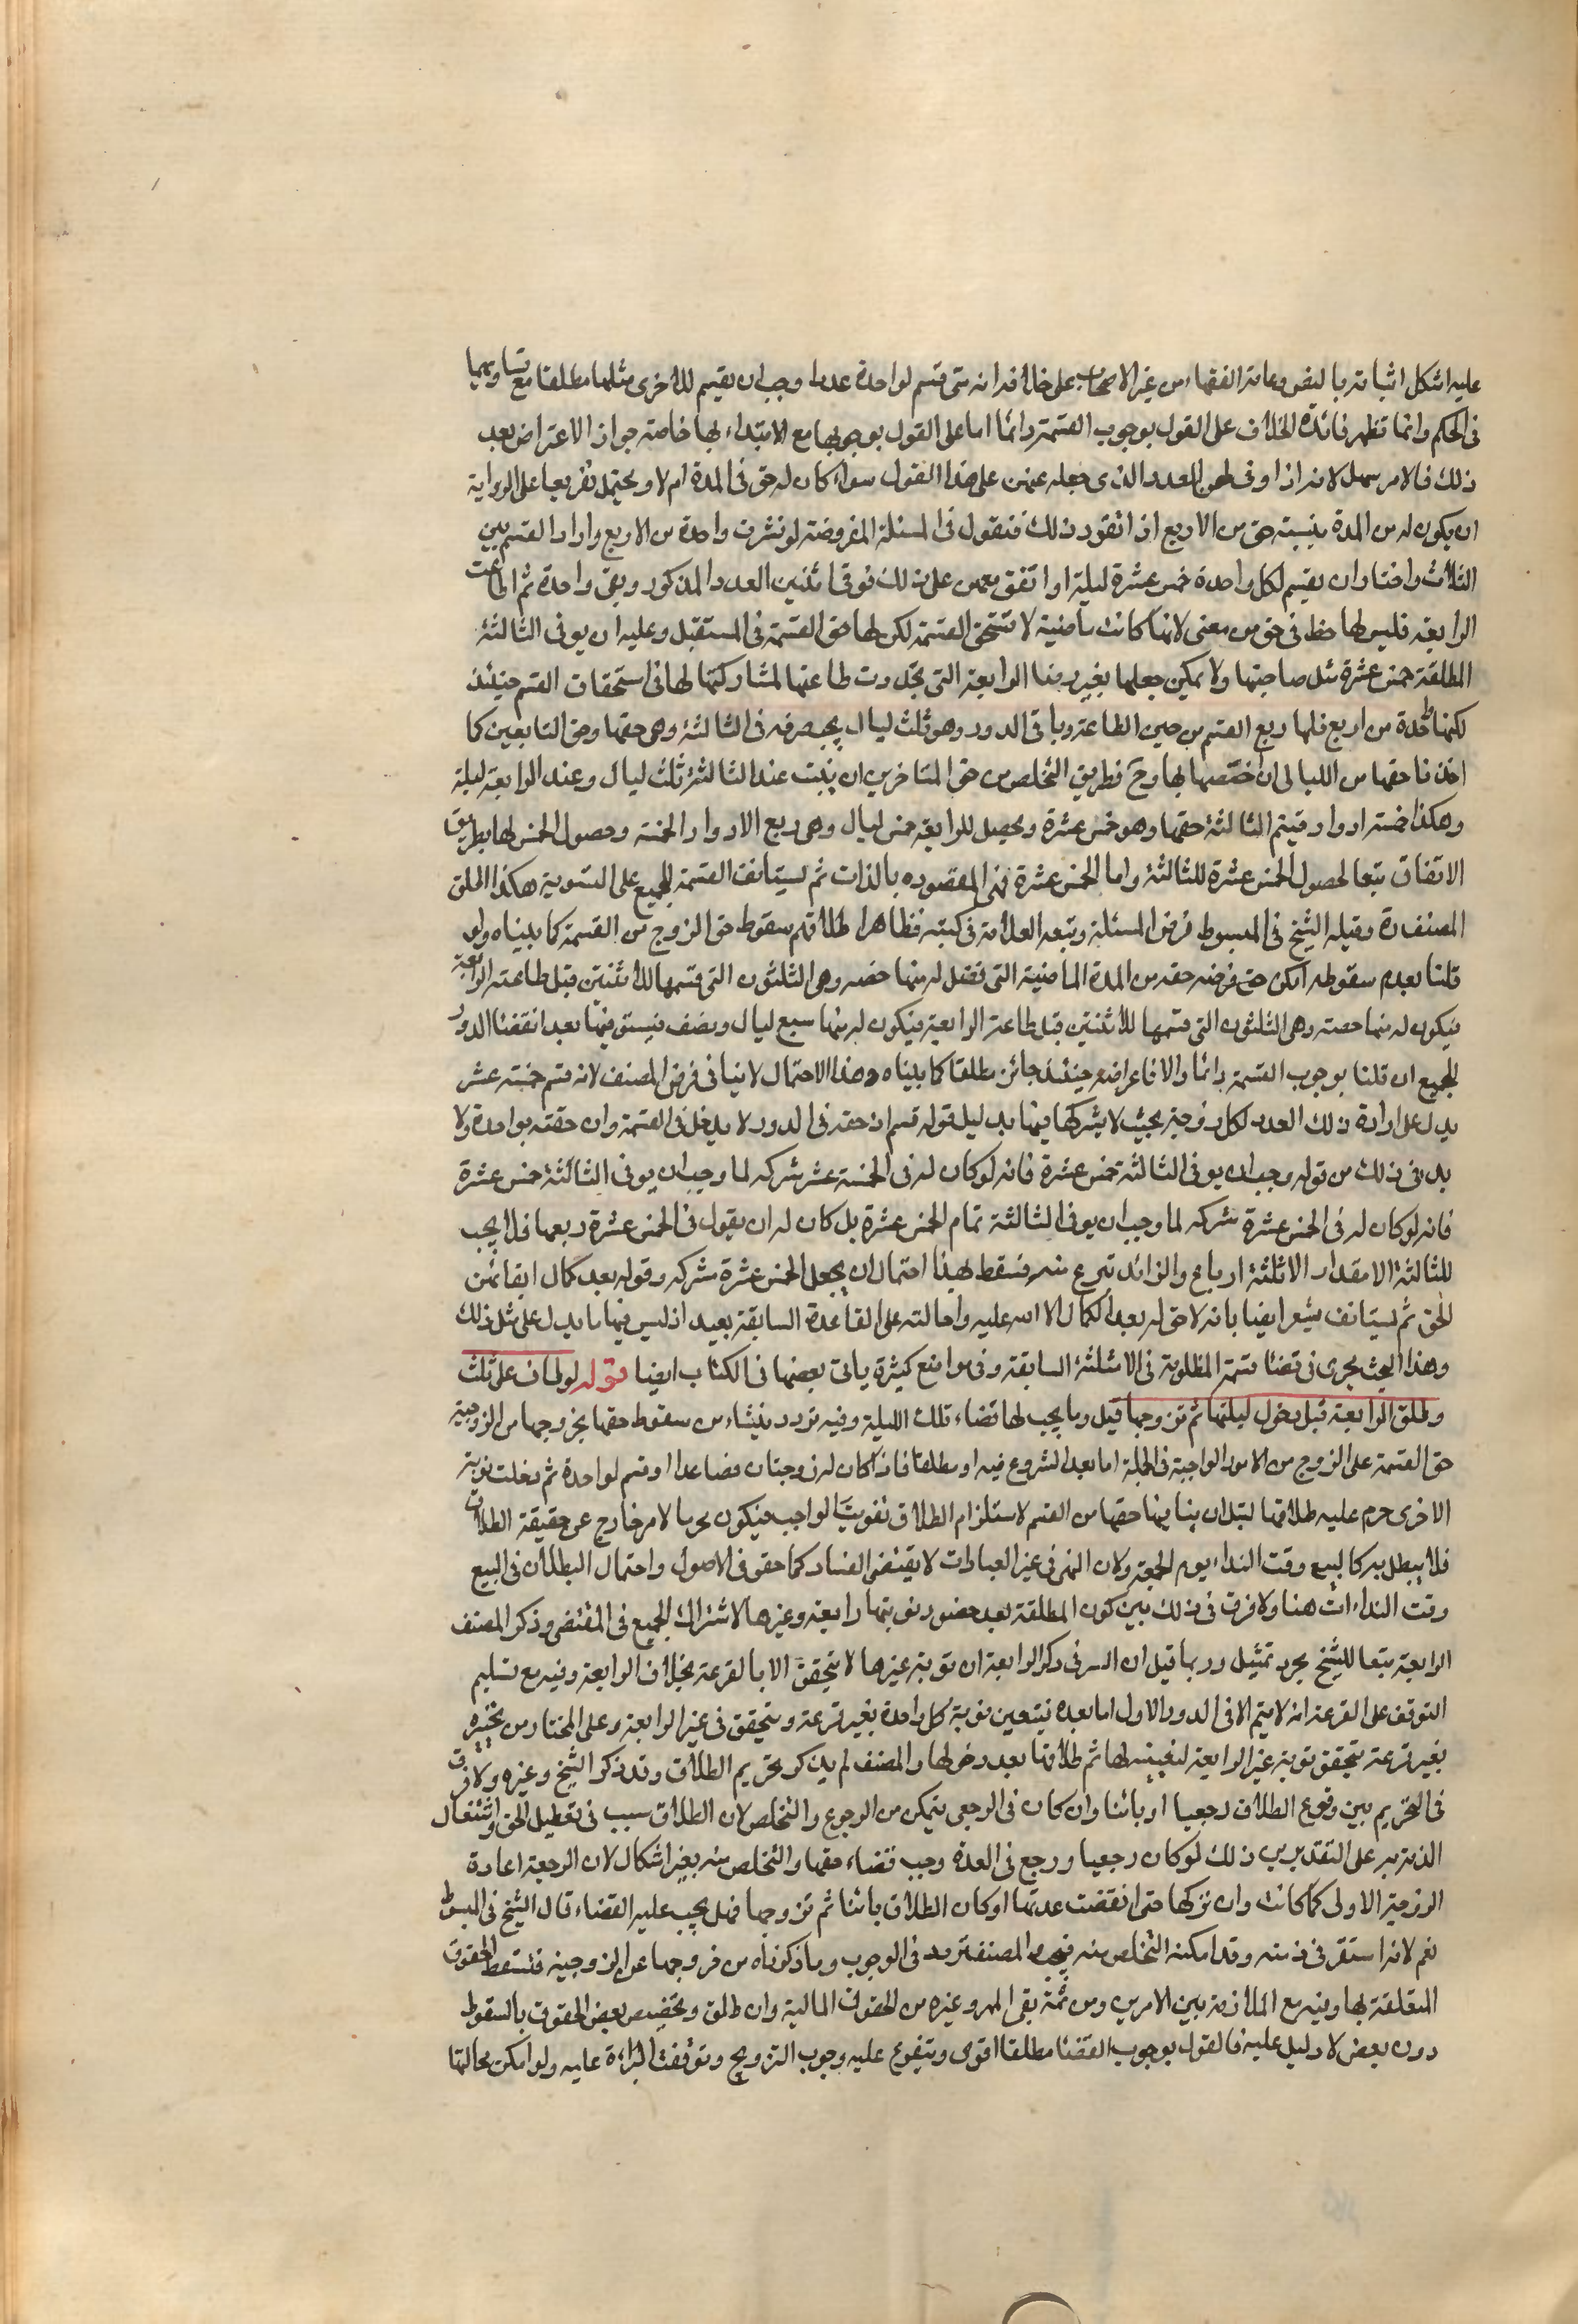 عليه اشكل اثباته بالنص وعامة الفقهاء من غير الاصحاب على خلافه انه متى قسم لواحدة عددا وجب ان يقسم للاخرى مثلها مطلقا مع تساويهما
فى الحكم وانما تظهر فائدة الخلاف على القول بوجوب القسمة دائما اما على القول بوجوبها مع الابتداء بها خاصة جواز الاعتراض بعد
ذلك فالامر سهل لانه اذا وفى لهن العدد الذى جعله عنهن على هذا القول سواء كان له حق فى المدة ام لا ويحتمل تفريعا على الرواية
ان يكون له من المدة بنسبة حق من الاربع اذا تقرر ذلك فنقول فى المسئلة المفروضة لو نشزت واحدة من الاربع واراد القسم بين
الثلاث واختار ان يقسم لكل واحدة خمس عشرة ليلة او اتفق معهن على ذلك فوفى اثنين العدد المذكور وبقى واحدة ثم اطاعت
الرابعة فليس لها حظ فى حق من مضى لانها كانت ماضية لا تستحق القسمة لكن لها حق القسمة فى المستقبل وعليه ان يوفى الثالثة
المطلقة خمس عشرة مثل صاحبتها ولا يمكن جعلها بغير رضا الرابعة التى تجددت طاعتها لمشاركتها لها فى استحقاق القسم حينئذ
لكنها واحدة من اربع فلها ربع القسم من حين الطاعة وباقى الدور وهو ثلث ليال يجب صرفه فى الثالثة وهى حقها وحق السابقين كما
اخذنا حقها من الليالى ان خصصها بها وح فطريق التخلص من حق المتاخرين ان يبيت عند الثالثة ثلث ليال وعند الرابعة ليلة
وهكذا خمسة ادوار فيتم الثالثة حقها وهو خمس عشرة ويحصل للرابعة خمس ليال وهى ربع الادوار الخمسة وحصول الخمس لها بطريق
الاتفاق تبعا لحصول الخمس عشرة للثالثة واما الخمس عشرة فهى المقصوده بالذات ثم يستانف القسمة للجميع على التسوية هكذا اطلق
المصنف ره وقبله الشيخ فى المبسوط فرض المسئلة وتبعه العلامة فى كتبه فظاهر اطلاقهم سقوط حق الزوج من القسمة كما بيناه ولو
قلنا بعدم سقوطه امكن ح فرضه حقه من المدة الماضية التى تفضل له منها حصه وهى الثلثون التى قسمها للاثنتين قبل طاعته الرابعة
فيكون له منها حصته وهى الثلثون التى قسمها للاثنتين قبل طاعة الرابعة فيكون له منها سبع ليال ونصف فيستوفيها بعد انقضاء الدور
للجميع ان قلنا بوجوب القسمة دائما والا فاعراضه حينئذ جائز مطلقا كما بيناه وهذا الاحتمال لا ينافى فرض المصنف لانه قسم خمسة عشر
يدل على ارادة ذلك العدد لكل زوجة بحيث لا يشركها فيها بدليل قوله قسم اذ حقه فى الدور لا يدخل فى القسمة وان حقته بواحدة ولا
بد فى ذلك من قوله وجب ان يوفى الثالثة خمس عشرة فانه لو كان له فى الخمسة عشر شركه لما وجب ان يوفى الثالثة خمس عشرة
فانه لو كان له فى الخمس عشرة شركه لما وجب ان يوفى الثالثة تمام الخمس عشرة بل كان له ان يقول فى الخمس عشرة ربعها فلا يجب
للثالثة الا مقدار الا ثلثة ارباع والزائد تبرع منه فسقط بهذا احتمال ان يجعل الخمس عشرة مشركه وقوله بعد كمال ايفائهن
الحق ثم يستانف يشعر ايضا بانه لا حق له بعد اكمال الا الله عليه واحالته على القاعدة السابقة بعيد اذ ليس فيها ما يدل على مثل ذلك
وهذا البحث يجرى فى قضاء قسمة المظلومة فى الامثلة السابقة وفى مواضع كثيرة ياتى بعضها فى الكتاب ايضا قوله لو طاف على ثلث
وطلق الرابعة قبل دخول ليلتها ثم تزوجها قيل وما يجب لها قضاء تلك الليلة وفيه تردد ينشاء من سقوط حقها بخروجها من الزوجية
حق القسمة على الزوج من الامور الواجبة فى الجملة اما بعد الشروع فيه او مطلقا فاذا كان له زوجتان فصاعدا وقسم لواحدة ثم دخلت نوبة
الاخرى حرم عليه طلاقها قبل ان يتأ فيها حقها من القسم لاستلزام الطلاق تفويتا لواجب فيكون محرما لامر خارج عن حقيقة الطلاق
فلا يبطل به كالبيع وقت النداء يوم الجمعة ولان النهى فى غير العبادات لا يقتضى الفساد كما حقق فى الاصول واحتمال البطلان فى البيع
وقت النداء ات هنا ولا فرق فى ذلك بين كون المطلقة بعد حضور نوبتها رابعة وغيرها لاشتراك الجميع فى المقتضى وذكر المصنف
الرابعة تبعا للشيخ مجرد تمثيل وربما قيل ان السر فى ذكر الرابعة ان نوبة غيرها لا يتحقق الا بالقرعة بخلاف الرابعة وفيه مع تسليم
التوقف على القرعة انه لا يتم الا فى الدور الاول اما بعده فيتعين نوبة كل واحدة بغير قرعة ويتحقق فى غير الرابعة وعلى المختار من تخيره
بغير قرعة يتحقق نوبة غير الرابعة لتعيينه لها ثم طلاقها بعد دخولها والمصنف لم يذكر تحريم الطلاق وقد ذكر الشيخ وغيره ولا فرق
فى التحريم بين وقوع الطلاق رجعيا او بائنا وان كان فى الرجعى يتمكن من الرجوع والتخلص لان الطلاق سبب فى تعطيل الحق واشتغال
الذمة به على التقديرين ذلك لو كان رجعيا ورجع فى العدة وجب قضاء حقها والتخلص منه بغير اشكال لان الرجعة اعادة
الزوجية الاولى كما كانت وان تركها حتى انقضت عدتها او كان الطلاق بائنا ثم تزوجها فهل يجب عليه القضاء قال الشيخ فى المبسوط
نعم لانه استقر فى ذمته وقد امكنه التخلص منه المصنف تردد فى الوجوب وما ذكرناه من خروجها عن الزوجية فتسقط الحقوق
المتعلقة بها وفيه مع الملازمة بين الامرين ومن ثمة بقى المهر وغيره من الحقوق المالية وان طلق وتخصيص بعض الحقوق بالسقوط
دون بعض لا دليل عليه فالقول بوجوب القضاء مطلقا اقوى ويتفرع عليه وجوب التزويج وتوقفت البراءة عليه ولو امكن محالتها